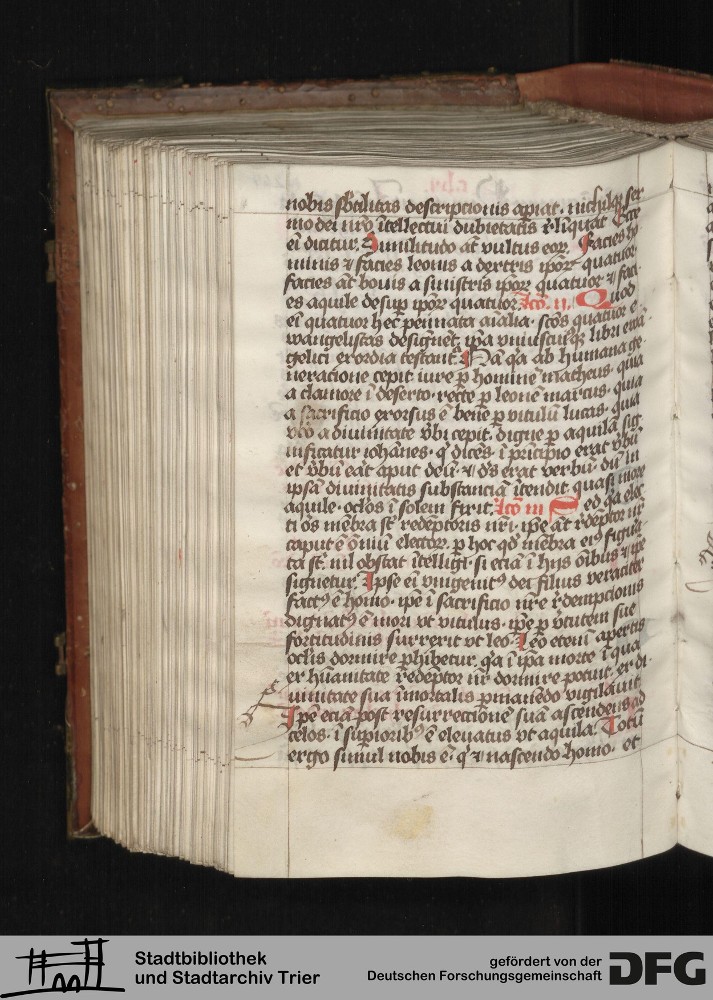 nobis sb̄tilitas descripcionis apīat. nichilqꝫ ser
mo dei nr̄o ītellectui dubietatis r̄liq̄uat. Ecce
ei dicitur. Similitudo at̄ vultus eoꝝ. facies ho
minis ⁊ facies leonis a dextris ip̄oꝝ quatuor.
facies at̄ bouis a sinistris ip̄oꝝ quatuor ⁊ faci
es aquile desup̄ ip̄oꝝ quatuor. lc̄o. ii. Quod
ei quatuor hec pennata aīalia. sc̄os quatuor e
wangelistas designēt. ip̄a vniuscuiusqꝫ libri ewā
gelici exordia testant̄. Nā qa ab humana ge
neracione cepit iure p̄ hominē matheus. quia
a clamore ī deserto. recte p̄ leonē marcus. quia
a sacrificio exorsus ē bene p̄ vitulū lucas. quia
vo a diuinitate v̄bi cepit. digne p̄ aquilā sig
nificatur iohānes. q̄ dices. ī principio erat v̄bū
et v̄bū erat aput deū. ⁊ d̄s erat verbū. dū in
ip̄sā diuinitatis substanciā ītendit. quasi more
aquile. oclos ī solem fixit. lc̄o iii Sed qa elec
ti os mēbra st̄ redēptoris nr̄i. ip̄e at̄ r̄dēptor nr̄
caput ē oīniū electoꝝ. p̄ hoc qd̄ mēbra eiꝰ figura
ta st̄. nil obstat ītelligi. si ecia ī hijs oībus ⁊ ip̄e
signetur. Ipse ei vnigenitꝰ dei filius veraciter
factꝰ ē homo. ip̄e ī sacrificio nr̄e r̄dempcionis
dignatꝰ ē mori vt vitulus. ip̄e p̄ v̄tutem sue
fortitudinis surrexit vt leo. Leo etenī apertis
oclis dormire p̄hibetur. qa ī ip̄a morte ī qua
ex hūanitate redēptor nr̄ dormire potuit. ex di
uinitate sua īmortalis p̄manēdo vigilauit.
Ip̄e eciā post resurrectionē suā ascendens ad
celos. ī sup̄iorib9 ē eleuatus vt aquila. Totū
ergo simul nobis ē. q̄ ⁊ nascendo homo. et
Stadtbibliothek
und Stadtarchiv Trier
gefördert von der
Deutschen Forschungsgemeinschaft
DFG